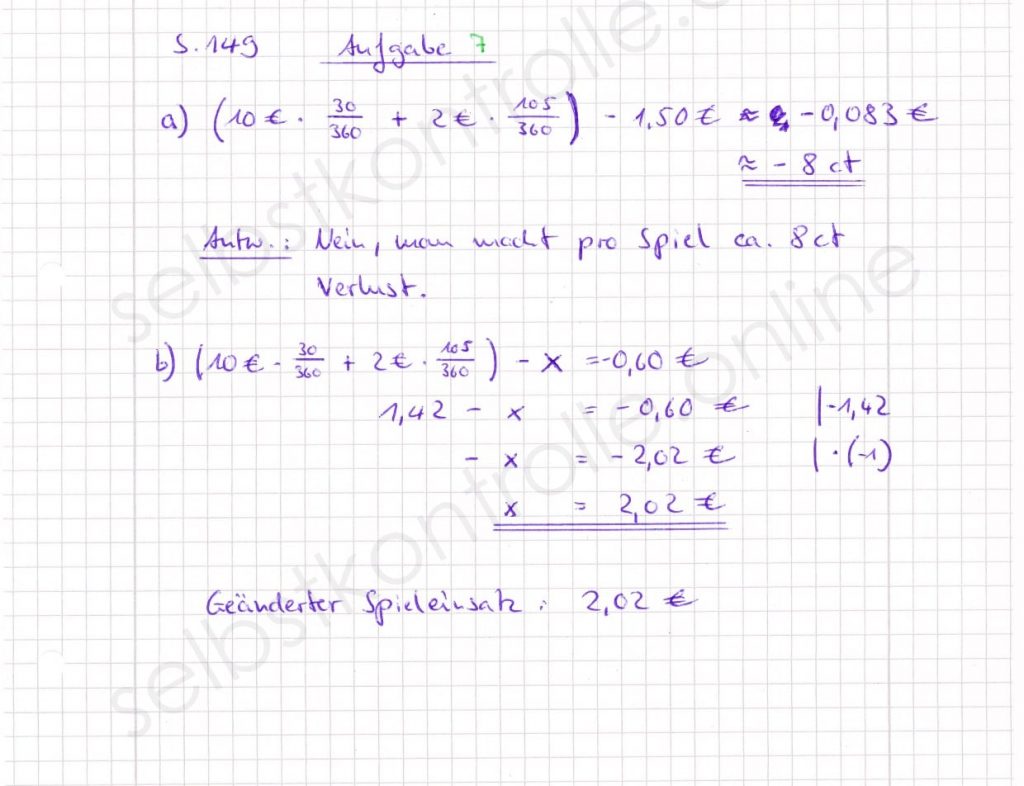 S. 149 Aufgabe 7
a) (10 € · 30/360 + 2 € · 105/360) - 1,50 € ≈ - 0,083 €
≈ - 8 ct
Antw.: Nein, man macht pro Spiel ca. 8 ct
Verlust.
b) (10 € · 30/360 + 2 € · 105/360) - x = -0,60 €
1,42 - x = - 0,60 € |-1,42
- x = - 2,02 € | · (-1)
x = 2,02 €
Geänderter Spieleinsatz: 2,02 €
selbstkontrolle.online
selbstkontrolle.online